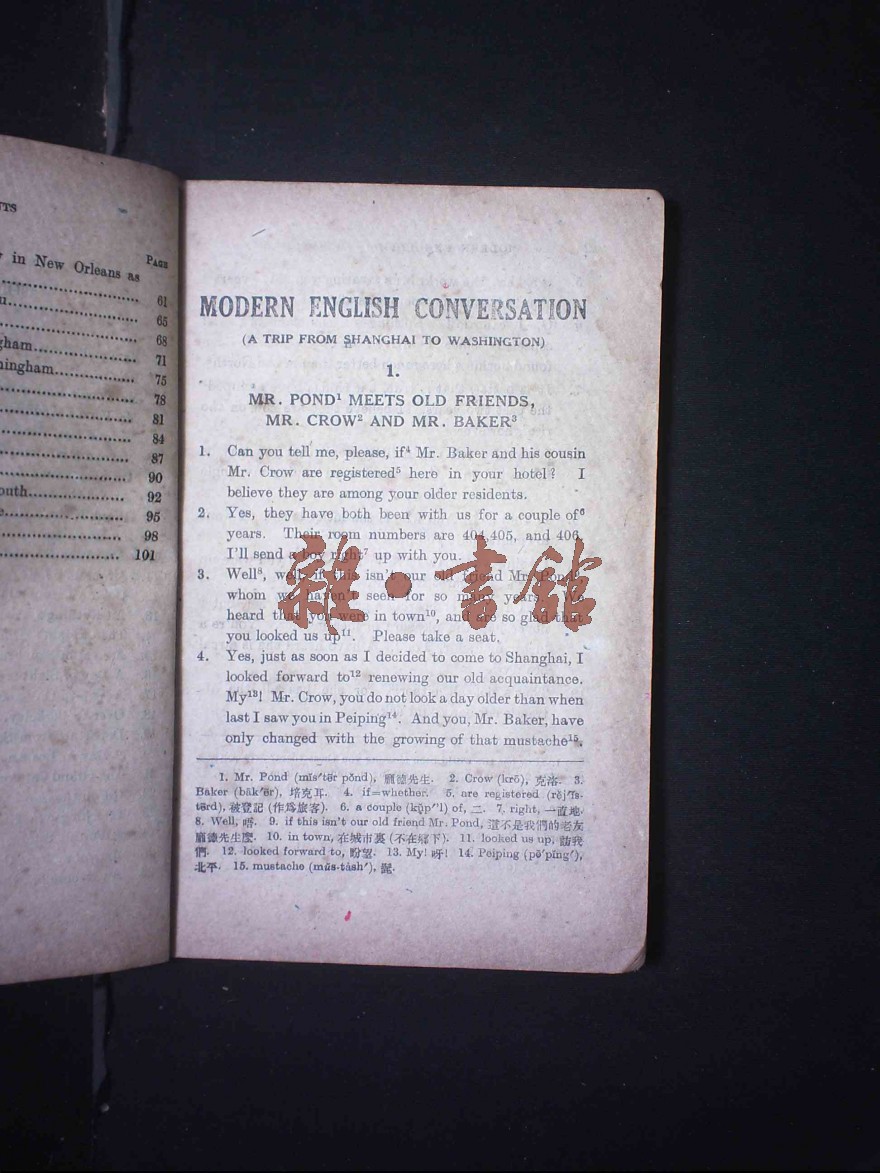 NTS
PAGE
y in New Orleans as
61
u 65
68
gham 71
mingham 75
78
81
84
87
90
outh 92
e 95
98
101
MODERN ENGLISH CONVERSATION
(A TRIP FROM SHANGHAI TO WASHINGTON)
1.
MR. POND¹ MEETS OLD FRIENDS,
MR. CROW² AND MR. BAKER³
1. Can you tell me, please, if⁴ Mr. Baker and his cousin
Mr. Crow are registered⁵ here in your hotel? I
believe they are among your older residents.
2. Yes, they have both been with us for a couple of⁶
years. Their room numbers are 404, 405, and 406.
I'll send a boy right⁷ up with you.
3. Well⁸, well, if this isn't our old friend Mr. Pond⁹
whom we haven't seen for so many years. We
heard that you were in town¹⁰, and are so glad that
you looked us up¹¹. Please take a seat.
4. Yes, just as soon as I decided to come to Shanghai, I
looked forward to¹² renewing our old acquaintance.
My¹³! Mr. Crow, you do not look a day older than when
last I saw you in Peiping¹⁴. And you, Mr. Baker, have
only changed with the growing of that mustache¹⁵.
1. Mr. Pond (mĭs′tẽr pŏnd), 龐德先生. 2. Crow (krō), 克洛. 3.
Baker (bāk′ẽr), 培克耳. 4. if=whether. 5. are registered (rĕj′ĭs-
tẽrd), 被登記 (作爲旅客). 6. a couple (kŭp′'l) of, 二. 7. right, 一直地.
8. Well, 9. if this isn't our old friend Mr. Pond, 這不是我們的老友
龐德先生麼. 10. in town, 在城市裏 (不在鄉下). 11. looked us up, 訪我
們. 12. looked forward to, 盼望. 13. My! 呀! 14. Peiping (pō′pĭng′),
北平. 15. mustache (mŭs-tàsh′), 髭.
雜·書館